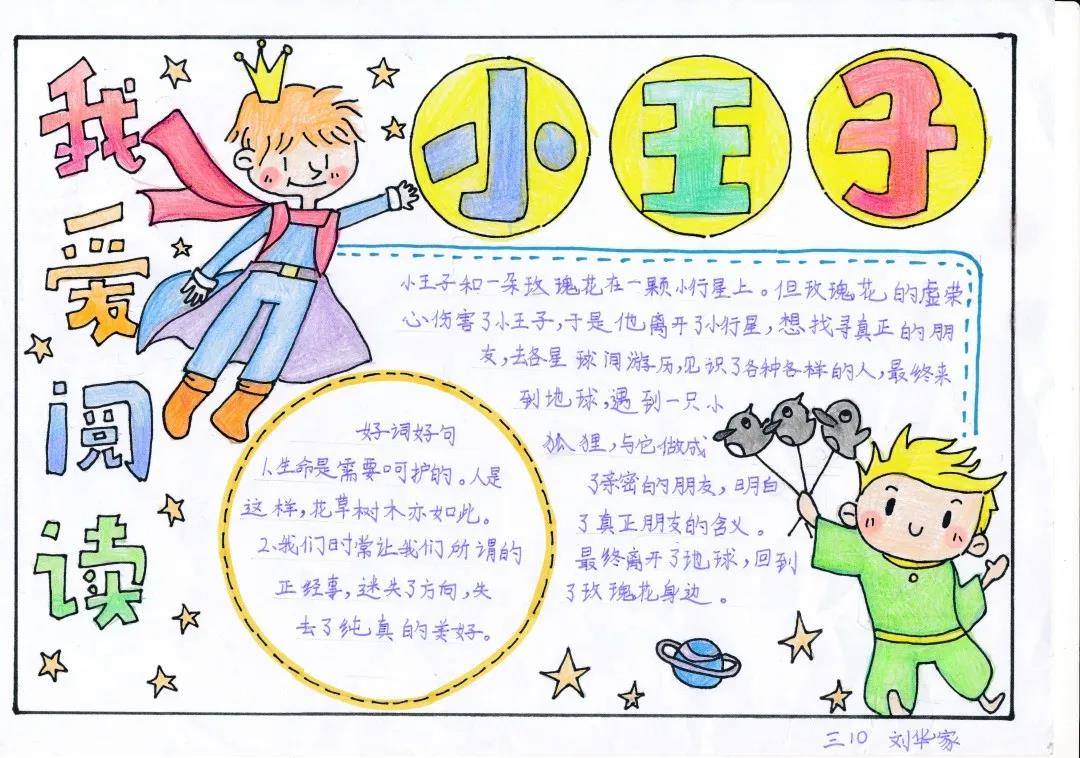 我爱阅读
小王子
小王子和一朵玫瑰花在一颗小行星上。但玫瑰花的虚荣
心伤害了小王子,于是他离开了小行星,想找寻真正的朋
友,去各星球间游历,见识了各种各样的人,最终来
到地球,遇到一只小
狐狸,与它做成
了亲密的朋友,明白
了真正朋友的含义。
最终离开了地球,回到
了玫瑰花身边。
好词好句
1.生命是需要呵护的。人是
这样,花草树木亦如此。
2.我们时常让我们所谓的
正经事,迷失了方向,失
去了纯真的美好。
三10 刘华家